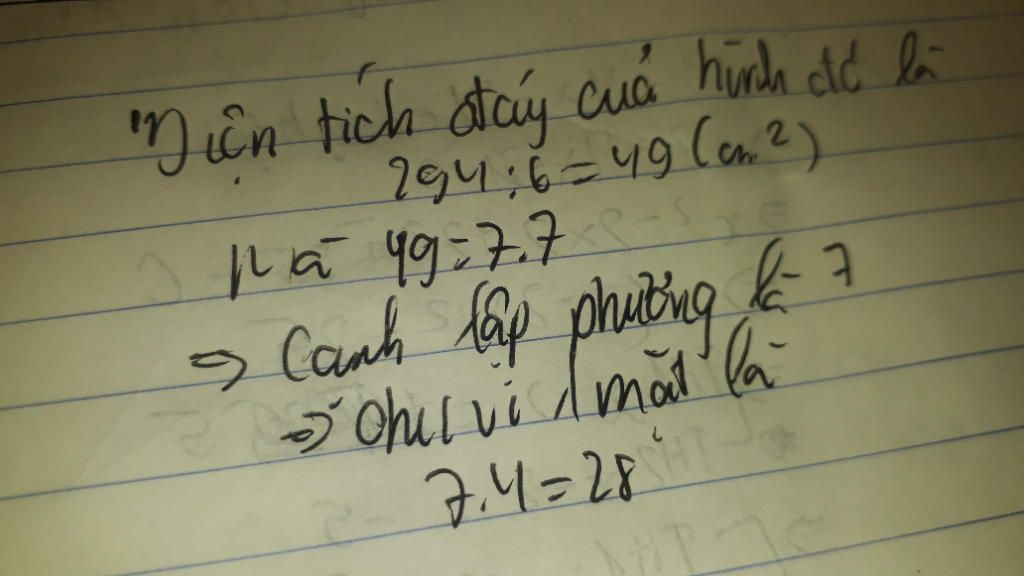 Diện tích đáy của hình đó là
294 : 6 = 49 (cm²)
Mà 49 = 7.7
⇒ Cạnh lập phương là 7
⇒ Chu vi 1 mặt là
7.4 = 28